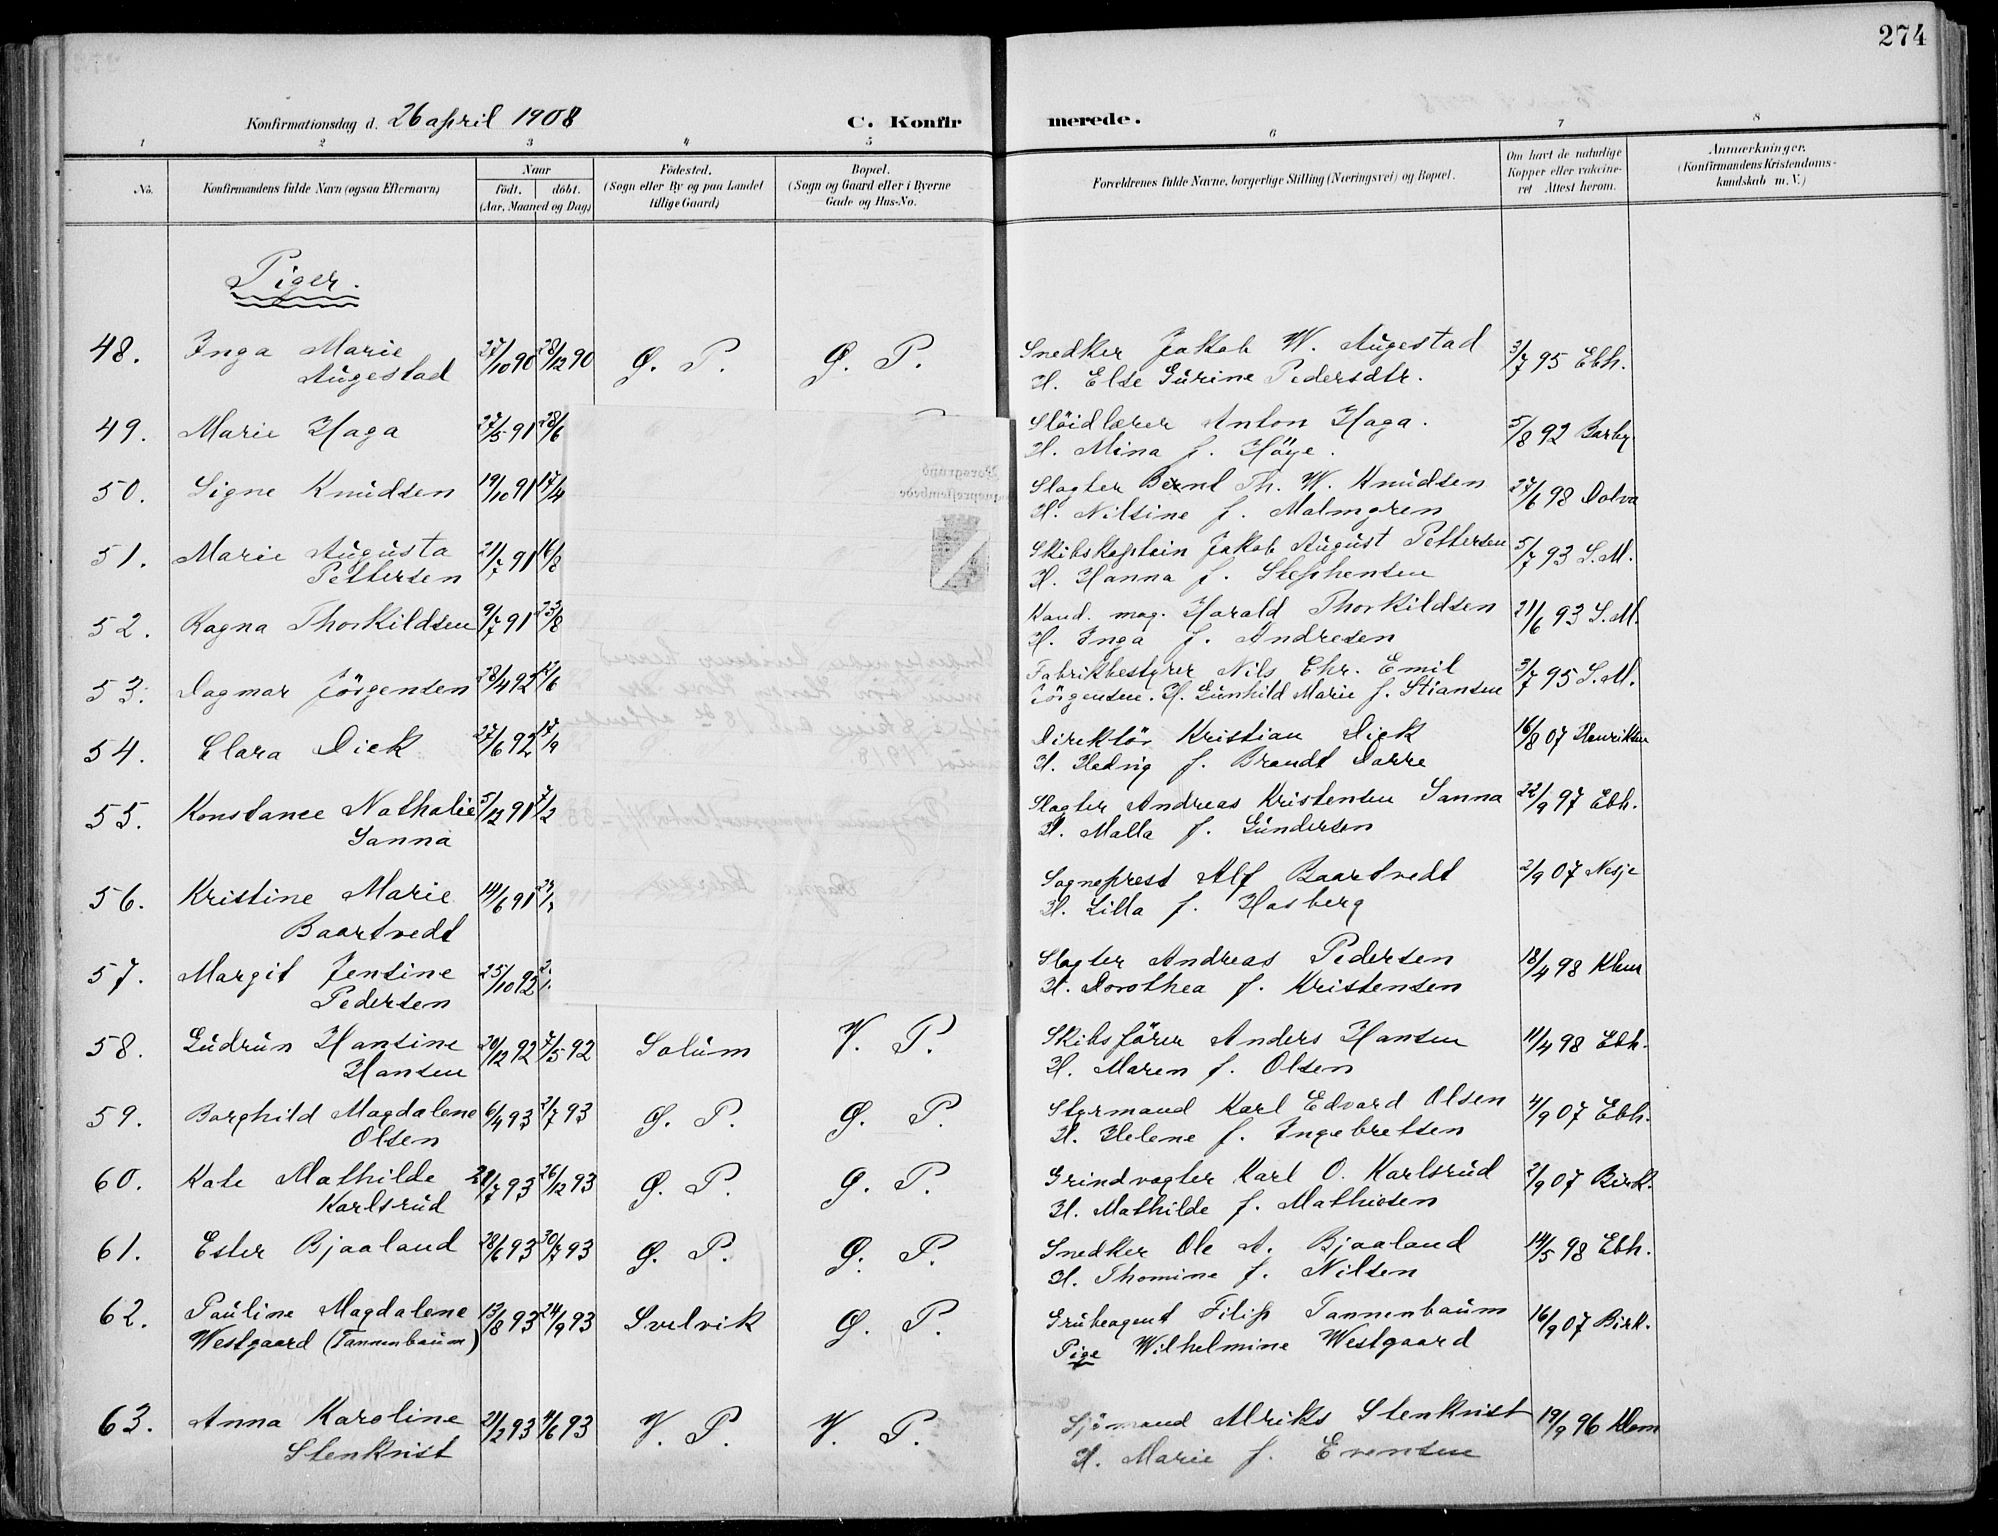 274
Konfirmationsdag d. 26 april 1908
C. Konfirmerede.
1 2 3 4 5 6 7 8
No.
Konfirmandens fulde Navn (ogsaa Efternavn)
Naar
födt. döbt.
(Aar, Maaned og Dag)
Födested.
(Sogn eller By og paa Landet
tillige Gaard)
Bopæl.
(Sogn og Gaard eller i Byerne
Gade og Hus-No.
Forældrenes fulde Navne, borgerlige Stilling (Næringsvei) og Bopæl.
Om havt de naturlige
Kopper eller vakcine-
ret Attest herom.
Anmærkninger.
(Konfirmandens Kristendoms-
kundskab m.V.)
Piger.
48. Inga Marie Augestad 27/10 90 28/12 90 Ø. P. Ø. P. Snedker Jakob W. Augestad
H. Else Gurine Pedersdtr. 3/7 95 Ebh.
49. Marie Haga 27/5 91 28/6 Slöidlærer Anton Haga.
H. Mina f. Höye. 5/8 92 Barby
50. Signe Knudsen 19/10 91 17/4 Slagter Bernt Th. W. Knudsen
H. Nilsine f. Malmgren 27/6 98 Dolva
51. Marie Augusta Pettersen 21/7 91 16/8 Skibskaptein Jakob August Pettersen
H. Hanna f. Stephensen 5/7 93 S.M.
52. Ragna Thorkildsen 9/7 91 23/8 Kand. mag. Harald Thorkildsen
H. Inga f. Andresen 21/6 93 S.M.
53. Dagmar Jörgensen 28/4 92 12/6 Fabrikbestyrer Nils Chr. Emil
Jörgensen. H. Gunhild Marie f. Stiansen 3/7 95 S.M.
54. Clara Dick 27/6 92 17/9 Direktör Kristian Dick
H. Hedvig f. Brandt Dorre 16/8 07 Henriksen
55. Konstance Nathalie Sanna 5/12 91 7/2 Slagter Andreas Kristensen Sanna
H. Malla f. Gundersen 22/9 97 Ebh.
56. Kristine Marie Baartvedt 14/6 91 Sogneprest Alf Baartvedt
H. Lilla f. Hasberg 2/9 07 Nesje
57. Margit Jensine Pedersen 25/10 92 Slagter Andreas Pedersen
H. Dorothea f. Kristensen 18/4 98 Klem
58. Gudrun Hansine Hansen 20/12 92 7/5 92 Solum V. P. Skibsförer Anders Hansen
H. Maren f. Olsen 11/4 98 Ebh.
59. Borghild Magdalene Olsen 6/4 93 2/7 93 Ø. P. Ø. P. Styrmand Karl Edvard Olsen
H. Helene f. Ingebretsen 4/9 07 Ebh.
60. Kate Mathilde Karlsrud 21/7 93 26/12 93 Ø. P. Ø. P. Grindvogter Karl O. Karlsrud
H. Mathilde f. Mathisen 2/9 07 Birk.
61. Ester Bjaaland 28/6 93 30/7 93 Ø. P. Ø. P. Snedker Ole A. Bjaaland
H. Thomine f. Nilsen 14/5 98 Ebh.
62. Pauline Magdalene Westgaard (Tannenbaum) 13/8 93 24/9 93 Svelvik Ø. P. Grubeagent Filip Tannenbaum
Pige Wilhelmine Westgaard 16/9 07 Birk.
63. Anna Karoline Stenkvist 21/2 93 4/6 93 V. P. V. P. Sjömand Alriks Stenkvist
H. Marie f. Evensen 19/9 96 Klem